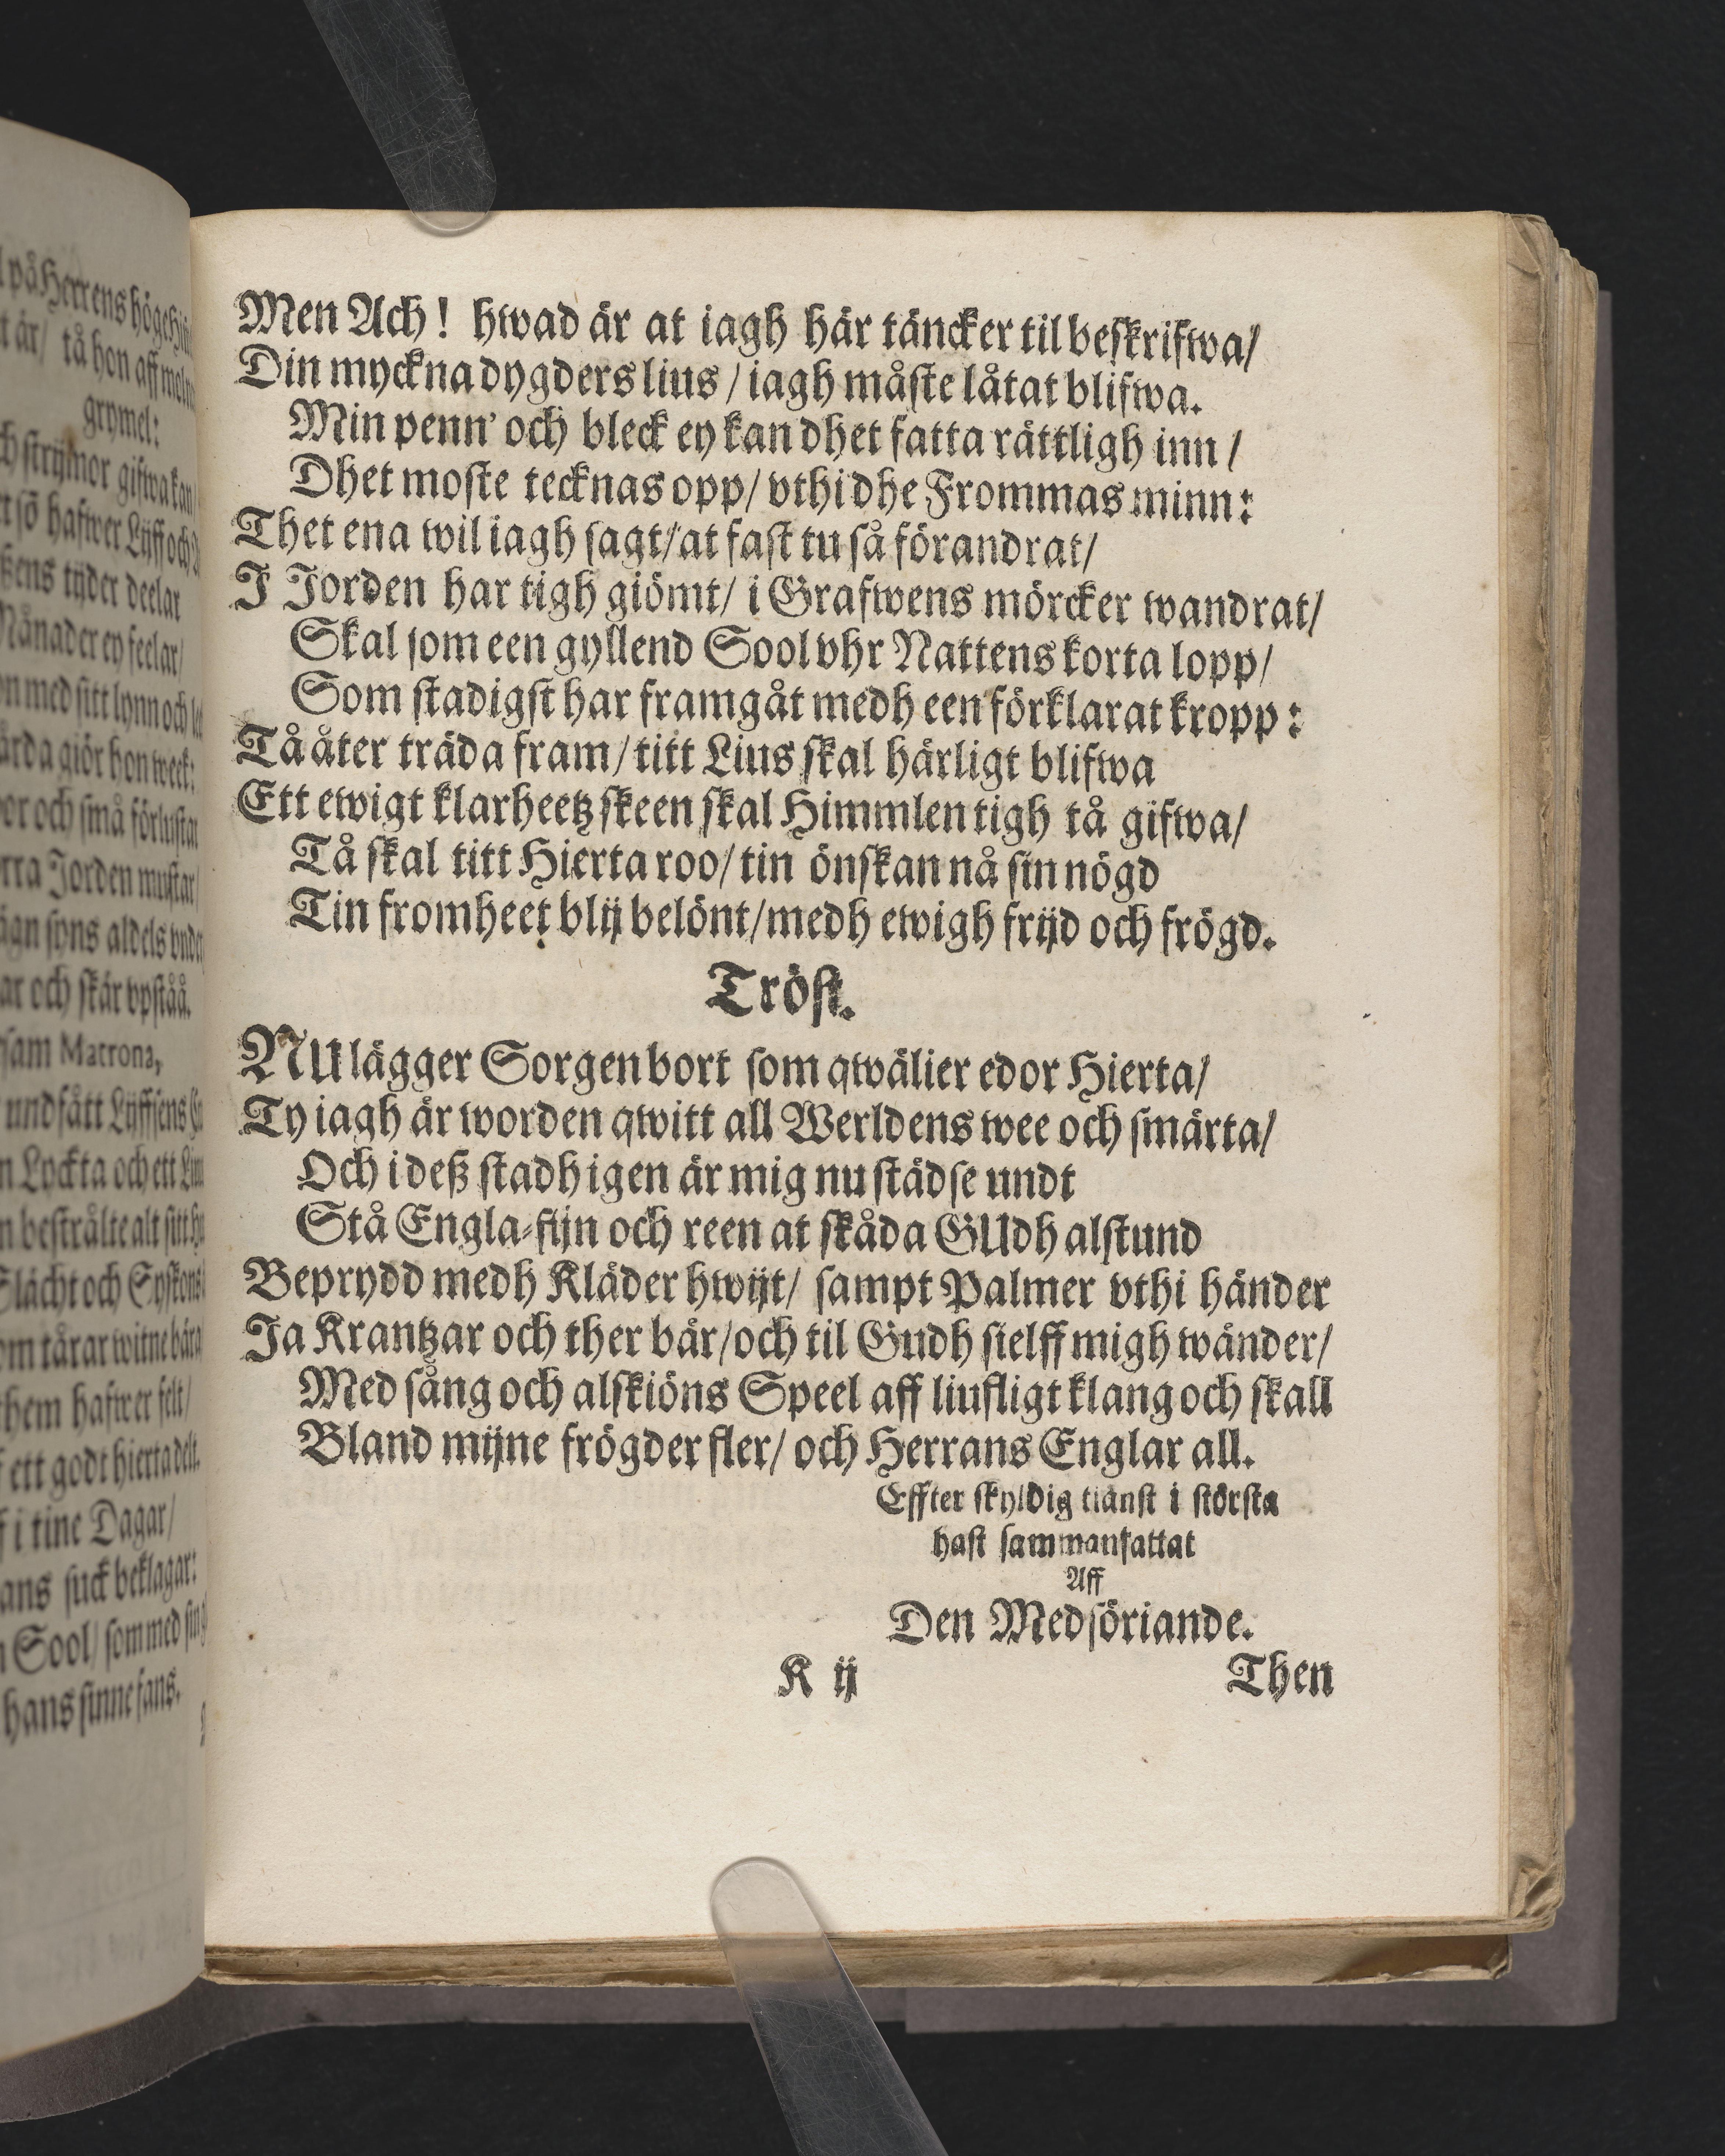 på Herrens höge
är/ tå hon aff
grymel:
strijmor gifwa kan/
sö hafwer Lijff och
tijder deelar
Månader ey feelar/
med sitt lynn och
giör hon week:
och små förlustar
Jorden mustar/
syns aldels
och skär vpståå.
Matrona,
undfått Lijffsens
Lyckta och ett
bestrålte alt sitt
Slächt och Syskons
tårar witne bära
them hafwer felt/
ett godt hierta delt.
i tine Dagar/
suck beklagar:
Sool/ som med
hans sinne fans.
Men Ach! hwad är at iagh här täncker til beskrifwa/
Din myckna dygders lius/ iagh måste låtat blifwa.
Min penn' och bleck ey kan dhet fatta rättligh inn/
Dhet moste tecknas opp/ vthi dhe Frommas minn:
Thet ena wil iagh sagt/ at fast tu så förandrat/
I Jorden har tigh giömt/ i Grafwens mörcker wandrat/
Skal som een gyllend Sool vhr Nattens korta lopp/
Som stadigst har framgåt medh een förklarat kropp:
Tå åter träda fram/ titt Lius skal härligt blifwa
Ett ewigt klarheetz skeen skal Himmlen tigh tå gifwa/
Tå skal titt Hierta roo/ tin önskan nå sin nögd
Tin fromheet blij belönt/ medh ewigh frijd och frögd.
Tröst.
NU lägger Sorgen bort som qwälier edor Hierta/
Ty iagh är worden qwitt all Werldens wee och smärta/
Och i deß stadh igen är mig nu städse undt
Stå Engla-fijn och reen at skåda GUdh alstund
Beprydd medh Kläder hwijt/ sampt Palmer vthi händer
Ja Krantzar och ther bär/ och til Gudh sielff migh wänder/
Med sång och alskiöns Speel aff liufligt klang och skall
Bland mijne frögder fler/ och Herrans Englar all.
Effter skyldig tiänst i största
hast sammanfattat
Aff
Den Medsöriande.
K ij
Then